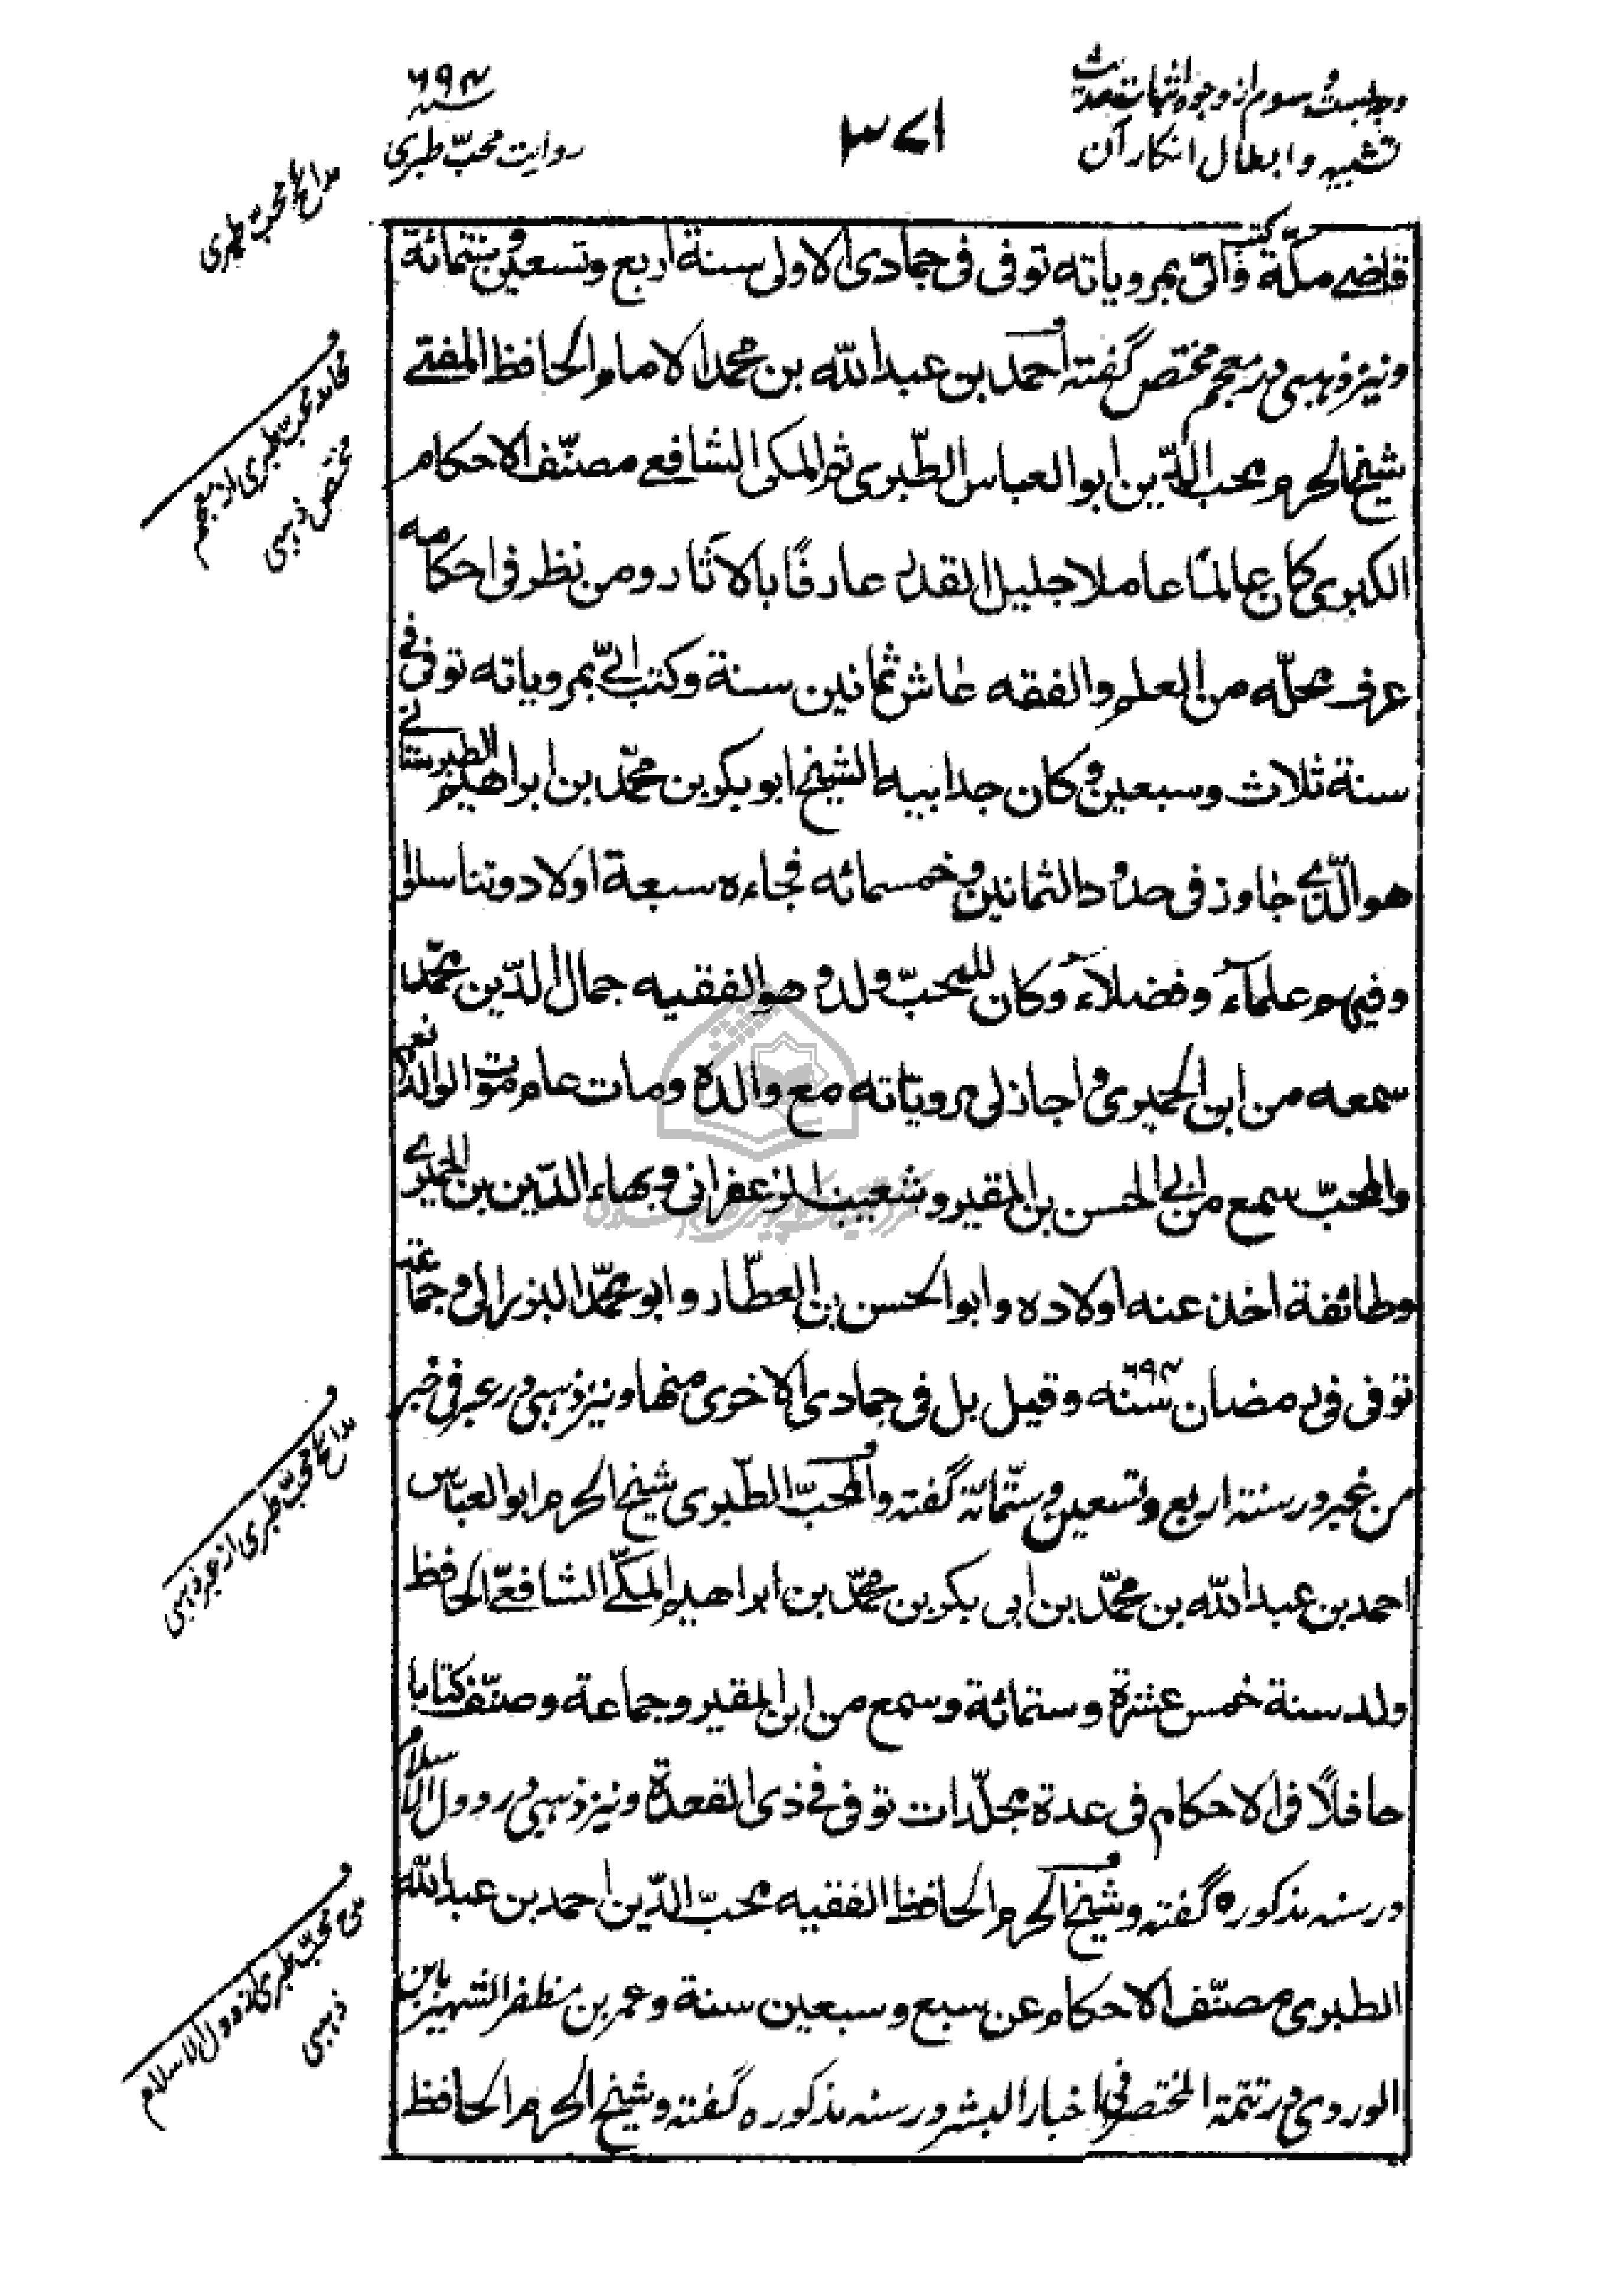 وجه بست و سوم از وجوه اثبات حدیث
تشبیه و ابطال انکار آن
۳۷۱
۶۹۴ سنه
روایت محبّ طبری
مدائح محبّ طبری
قاضی مکّة وکتب الیّ بمرویاته توفی فی جمادی الاولی سنة اربع وتسعین وستمائة
ونیز ذهبی در معجم مختص گفته احمد بن عبد الله بن محمد الامام الحافظ المفتی
محامد محبّ طبری از معجم
مختص ذهبی
شیخ الحرم محب الدّین ابو العباس الطّبری ثم المکی الشافعی مصنّف الاحکام
الکبری کان عالمًا عاملا جلیل القدر عارفًا بالآثار ومن نظر فی احکامه
عرف محلّه من العلم والفقه عاش ثمانین سنة وکتب الیّ بمرویاته توفی فی
سنة ثلاث وسبعین وکان جد ابیه الشیخ ابو بکر بن محمّد بن ابراهیم الطبرستانی
هو الّذی جاوز فی حدود الثمانین وخمسمائه فجاءه سبعة اولاد وتناسلوا
وفیهم علماء وفضلاء وکان للمحبّ ولد وهو الفقیه جمال الدّین محمّد
سمعه من ابن الحمیری واجاز لی مرویّاته مع والده ومات عام موت الوالد نعم
والمحبّ سمع من ابی الحسن بن المقیر وشعیب الزعفرانی وبهاء الدّین بن الحمیری
وطائفة اخذ عنه اولاده وابو الحسن بن العطّار وابو محمّد البرزالی وجماعة
توفی فی رمضان سنه ۶۹۴ وقیل بل فی جمادی الاخری منها ونیز ذهبی در عبر فی خبر
من غبر در سنة اربع وتسعین وستّمائة گفته والمحبّ الطّبری شیخ الحرم ابو العبّاس
مدائح محبّ طبری از عبر ذهبی
احمد بن عبد الله بن محمّد بن ابی بکر بن محمّد بن ابراهیم المکّی الشافعیّ الحافظ
ولد سنة خمس عشرة وستمائة وسمع من ابن المقیر وجماعة وصنّف کتابا
حافلًا فی الاحکام فی عدة مجلّدات توفی فی ذی القعدة ونیز ذهبی در دول الاسلام
در سنه مذکوره گفته وشیخ الحرم الحافظ الفقیه محبّ الدّین احمد بن عبد الله
محبّ طبری از دول الاسلام
ذهبی
الطبری مصنّف الاحکام عن سبع وسبعین سنة وعمر بن مظفر الشهیر بابن
الوردی در تتمة المختصر فی اخبار البشر در سنه مذکوره گفته وشیخ الحرم الحافظ